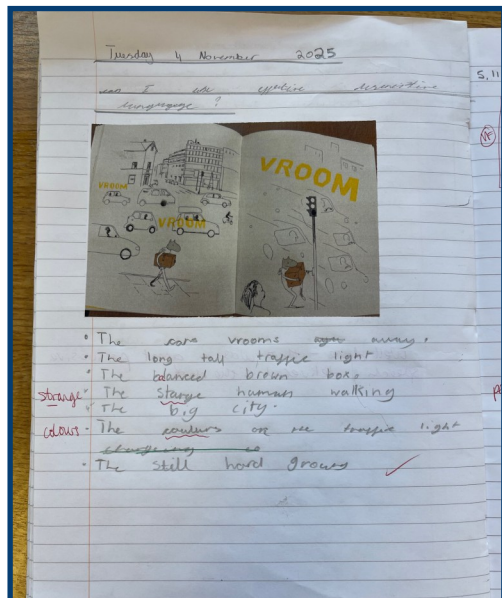 Tuesday 4 November 2025
can I use effective descriptive
language?
VROOM
VROOM
VROOM
The cars vrooms away.
The long tall traffic light
The balanced brown box.
strange The starge human walking
The big city.
colours The coulurs on the traffic light
The still hard
5.11